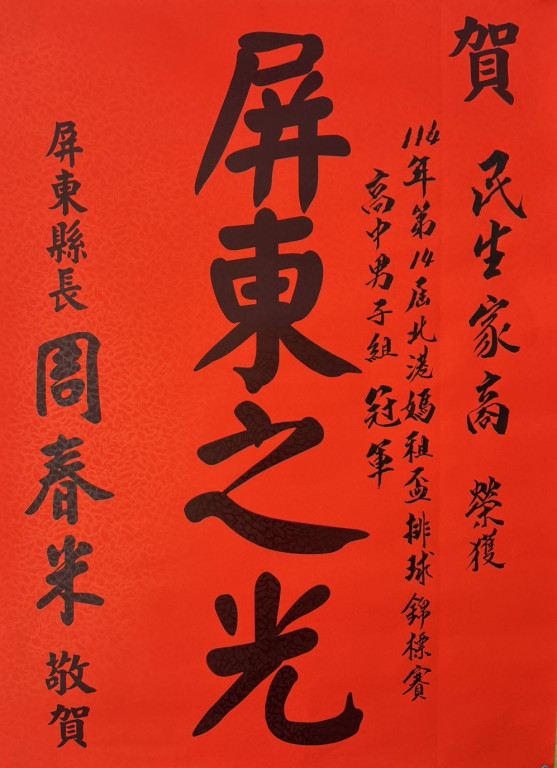 賀 民生家商 榮獲
114年第14屆北港媽祖盃排球錦標賽
高中男子組 冠軍
屏東之光
屏東縣長 周春米 敬賀